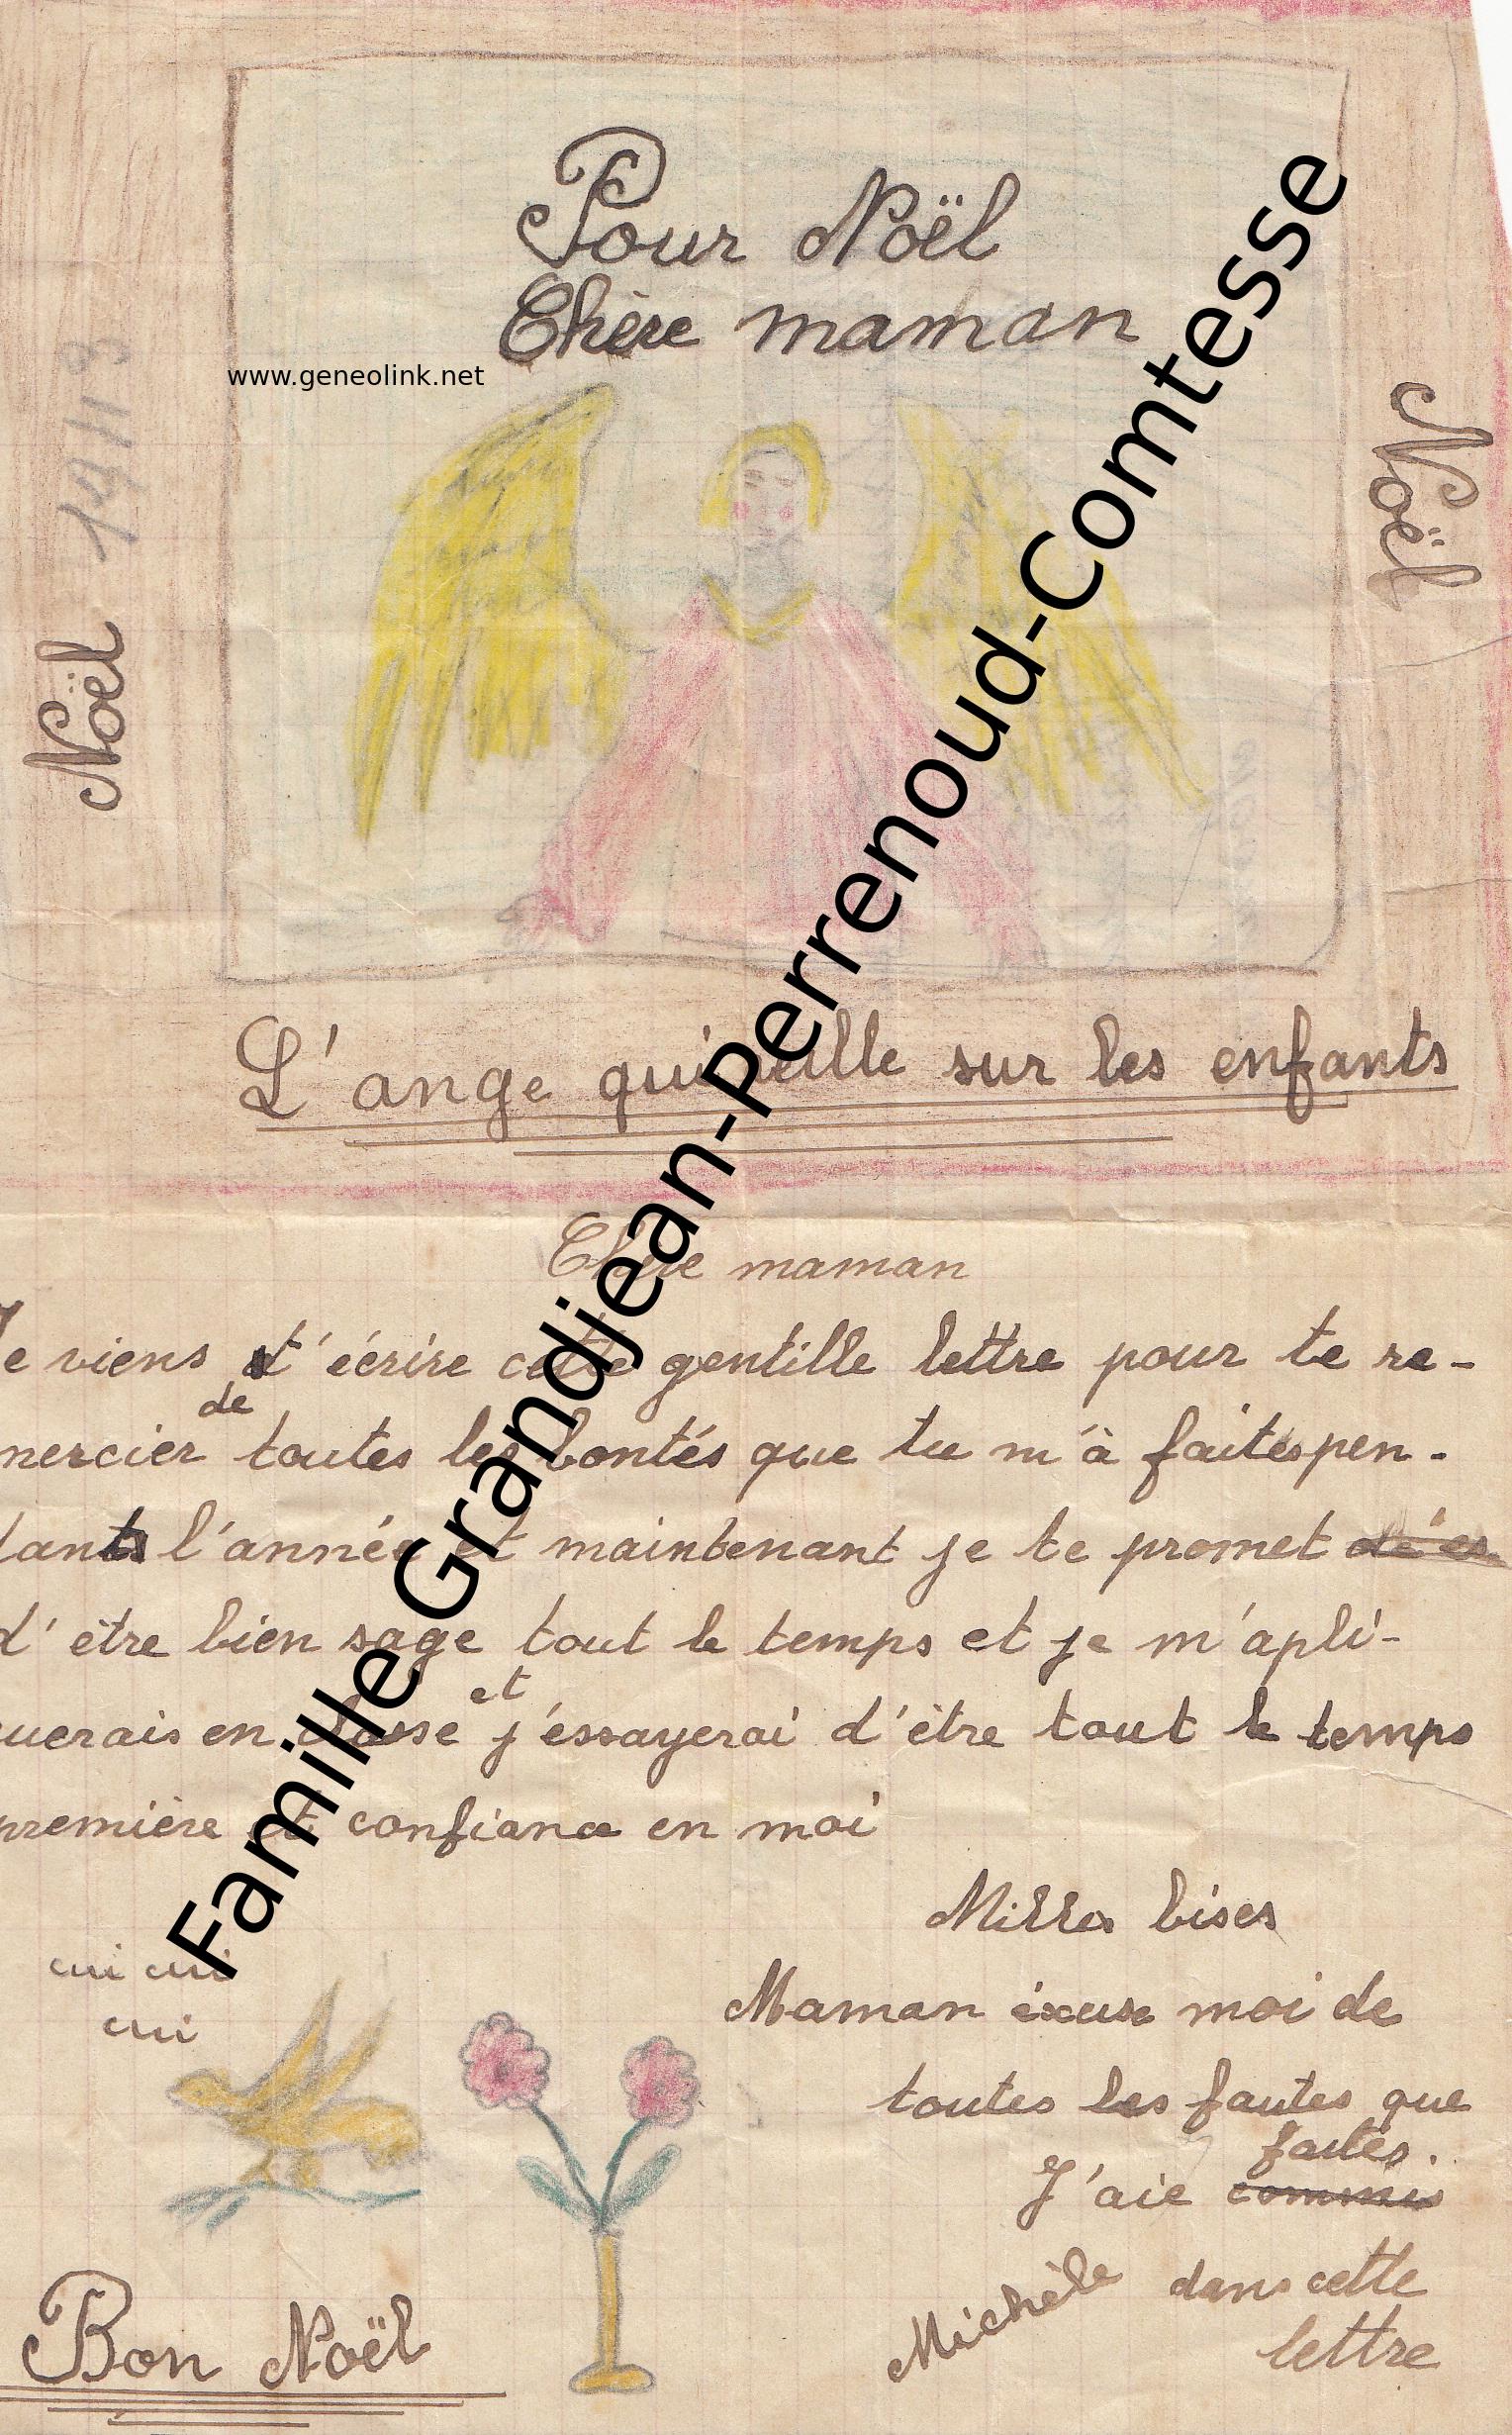 Pour Noël
Chère maman
www.geneolink.net
Noël
Noël
Famille Grandjean-Perrenoud-Comtesse
L'ange qui veille sur les enfants
Chère maman
Je viens t'éécrire cette gentille lettre pour te re-
mercier de toutes les bontés que tu m'à faites pen-
dant l'année et maintenant je te promet
d'être bien sage tout le temps et je m'apli-
querais en classe et j'essayerai d'être tout le temps
première et confiance en moi
Milles bises
cui cui
cui
Maman éxcuse moi de
toutes les fautes que
faites.
J'aie commis
dans cette
lettre
Michèle
Bon Noël